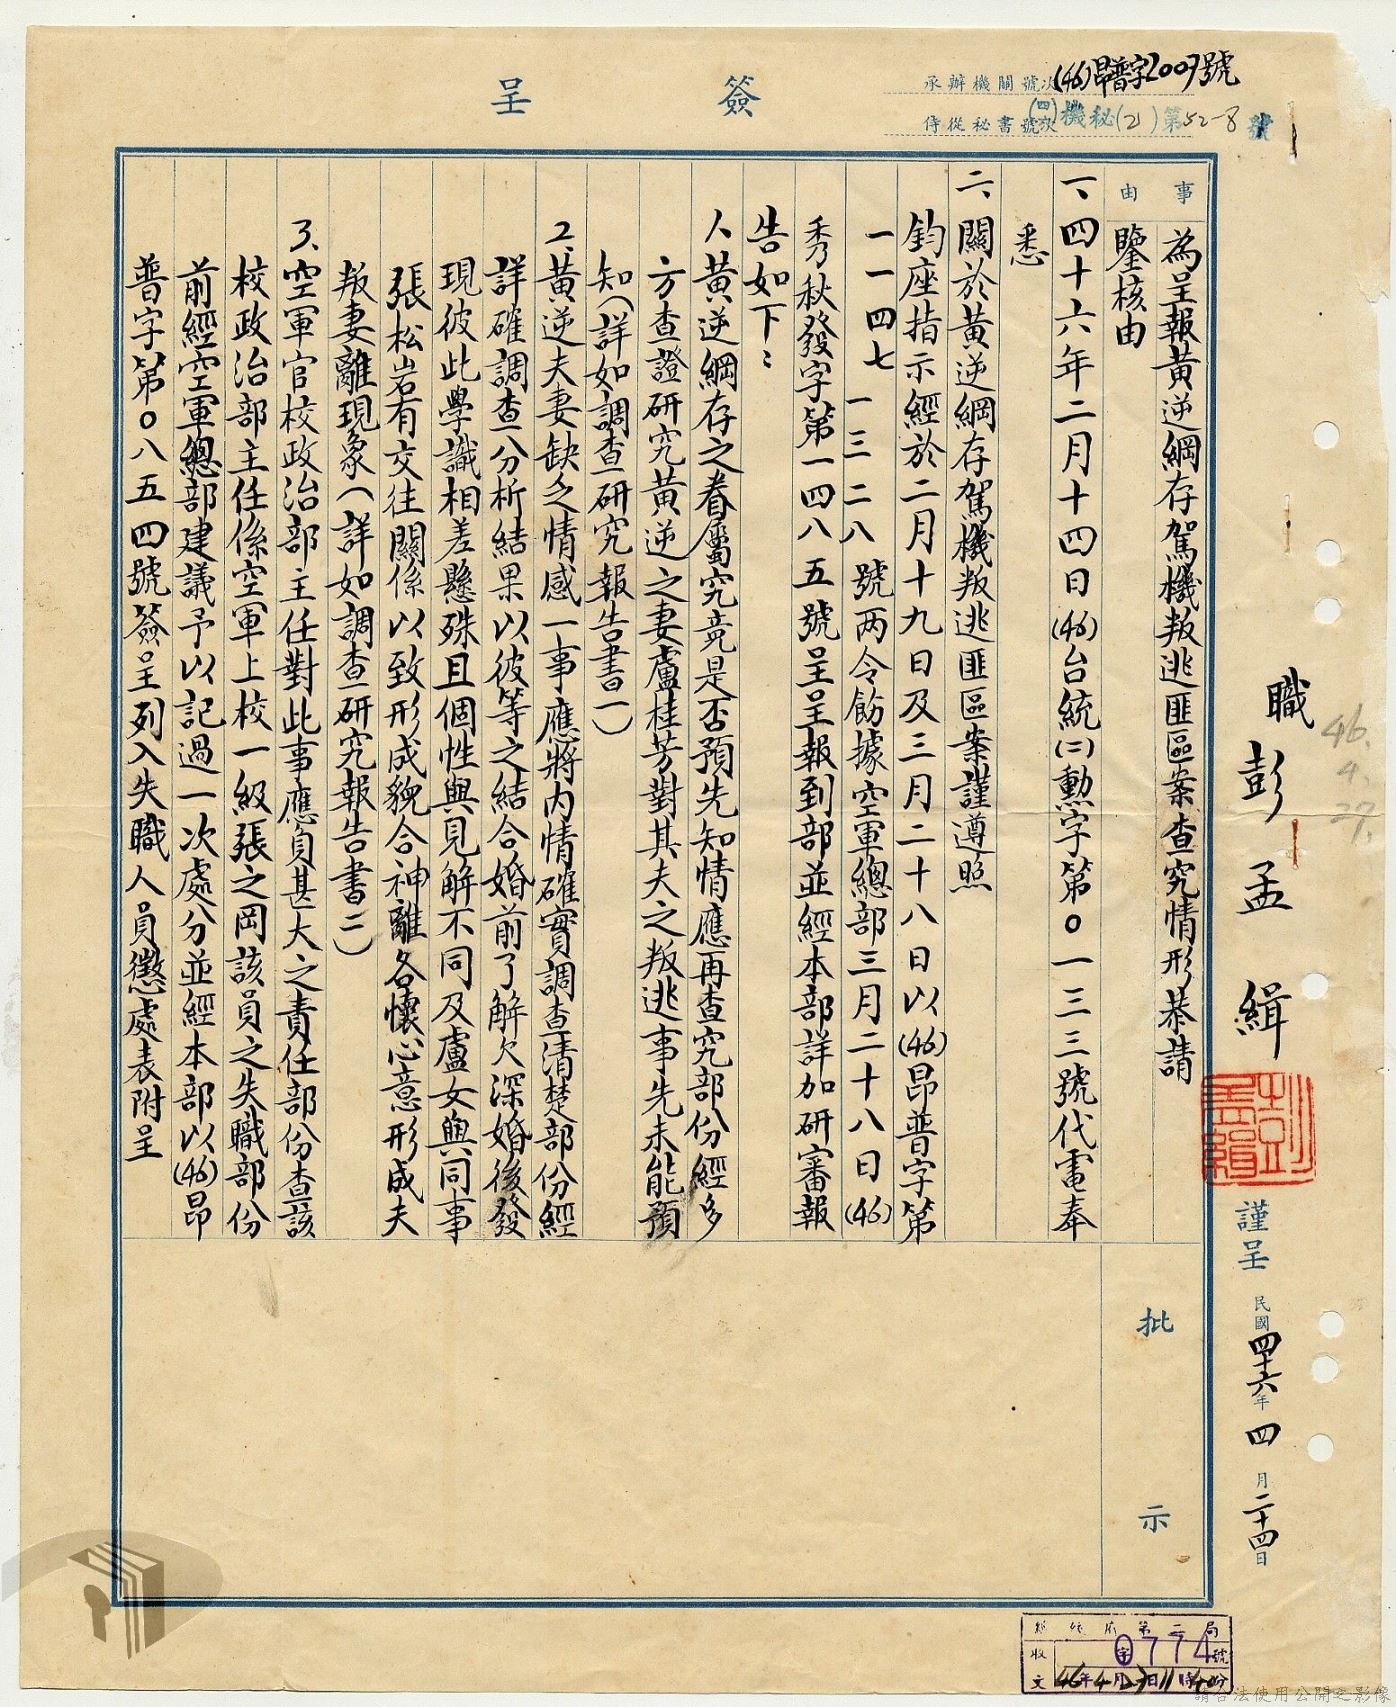 簽呈
承辦機關號次(46)昂普字2007號
侍從秘書號次(四)機秘(2)第52-8號
事由
為呈報黃逆綱存駕機叛逃匪區案查究情形恭請
鑒核由
一、四十六年二月十四日(46)台統(二)勳字第0一三三號代電奉
悉
二、關於黃逆綱存駕機叛逃匪區案謹遵照
鈞座指示經於二月十九日及三月二十八日以(46)昂普字第
一一四七 一三二八 號两令飭據空軍總部三月二十八日(46)
秀秋發字第一四八五號呈呈報到部並經本部詳加研審報
告如下：
1、黃逆綱存之眷屬究竟是否預先知情應再查究部份經多
方查證研究黃逆之妻盧桂芳對其夫之叛逃事先未能預
知（詳如調查研究報告書一）
2、黃逆夫妻缺乏情感一事應將內情確實調查清楚部份經
詳確調查分析結果以彼等之結合婚前了解欠深婚後發
現彼此學識相差懸殊且個性與見解不同及盧女與同事
張松岩有交往關係以致形成貌合神離各懷心意形成夫
叛妻離現象（詳如調查研究報告書二）
3、空軍官校政治部主任對此事應負甚大之責任部份查該
校政治部主任係空軍上校一級張之岡該員之失職部份
前經空軍總部建議予以記過一次處分並經本部以(46)昂
普字第0八五四號簽呈列入失職人員懲處表附呈
批示
職彭孟緝
謹呈
民國四十六年四月二十四日
46.4.27.
總統府第二局
收文 字0774號
46年4月27日11時40分
請合法使用公開之影像